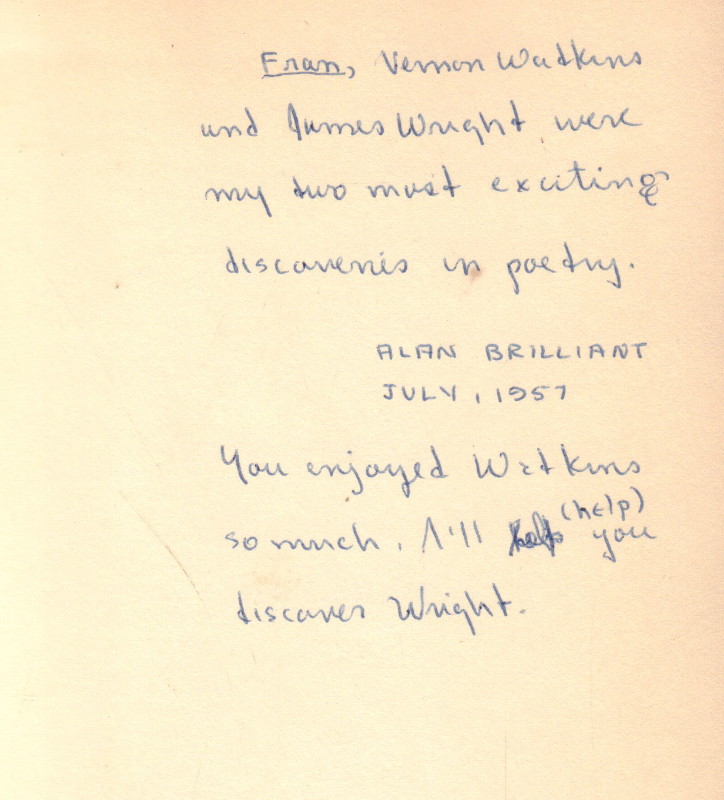 Fran, Vernon Watkins
and James Wright were
my two most exciting
discoveries in poetry.
ALAN BRILLIANT
JULY, 1957
You enjoyed Watkins
so much, I'll help (help) you
discover Wright.